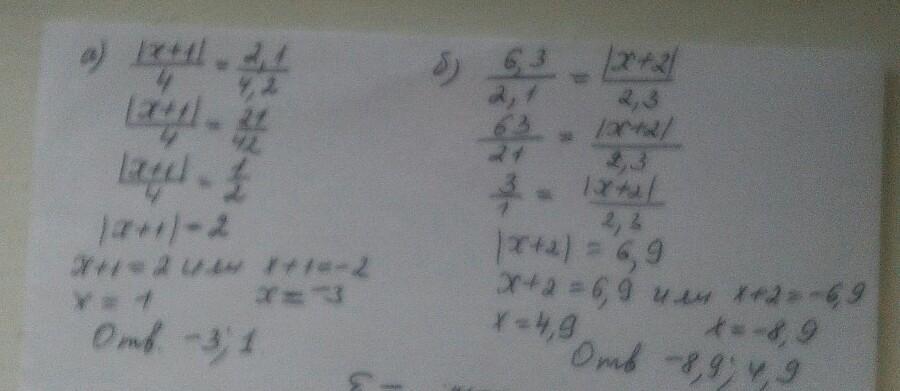 а) |x+1|/4 = 2,1/4,2
|x+1|/4 = 21/42
|x+1|/4 = 1/2
|x+1| = 2
x+1 = 2 или x+1 = -2
x = 1 x = -3
Отв. -3; 1
б) 6,3/2,1 = |x+2|/2,3
63/21 = |x+2|/2,3
3/1 = |x+2|/2,3
|x+2| = 6,9
x+2 = 6,9 или x+2 = -6,9
x = 4,9 x = -8,9
Отв -8,9; 4,9